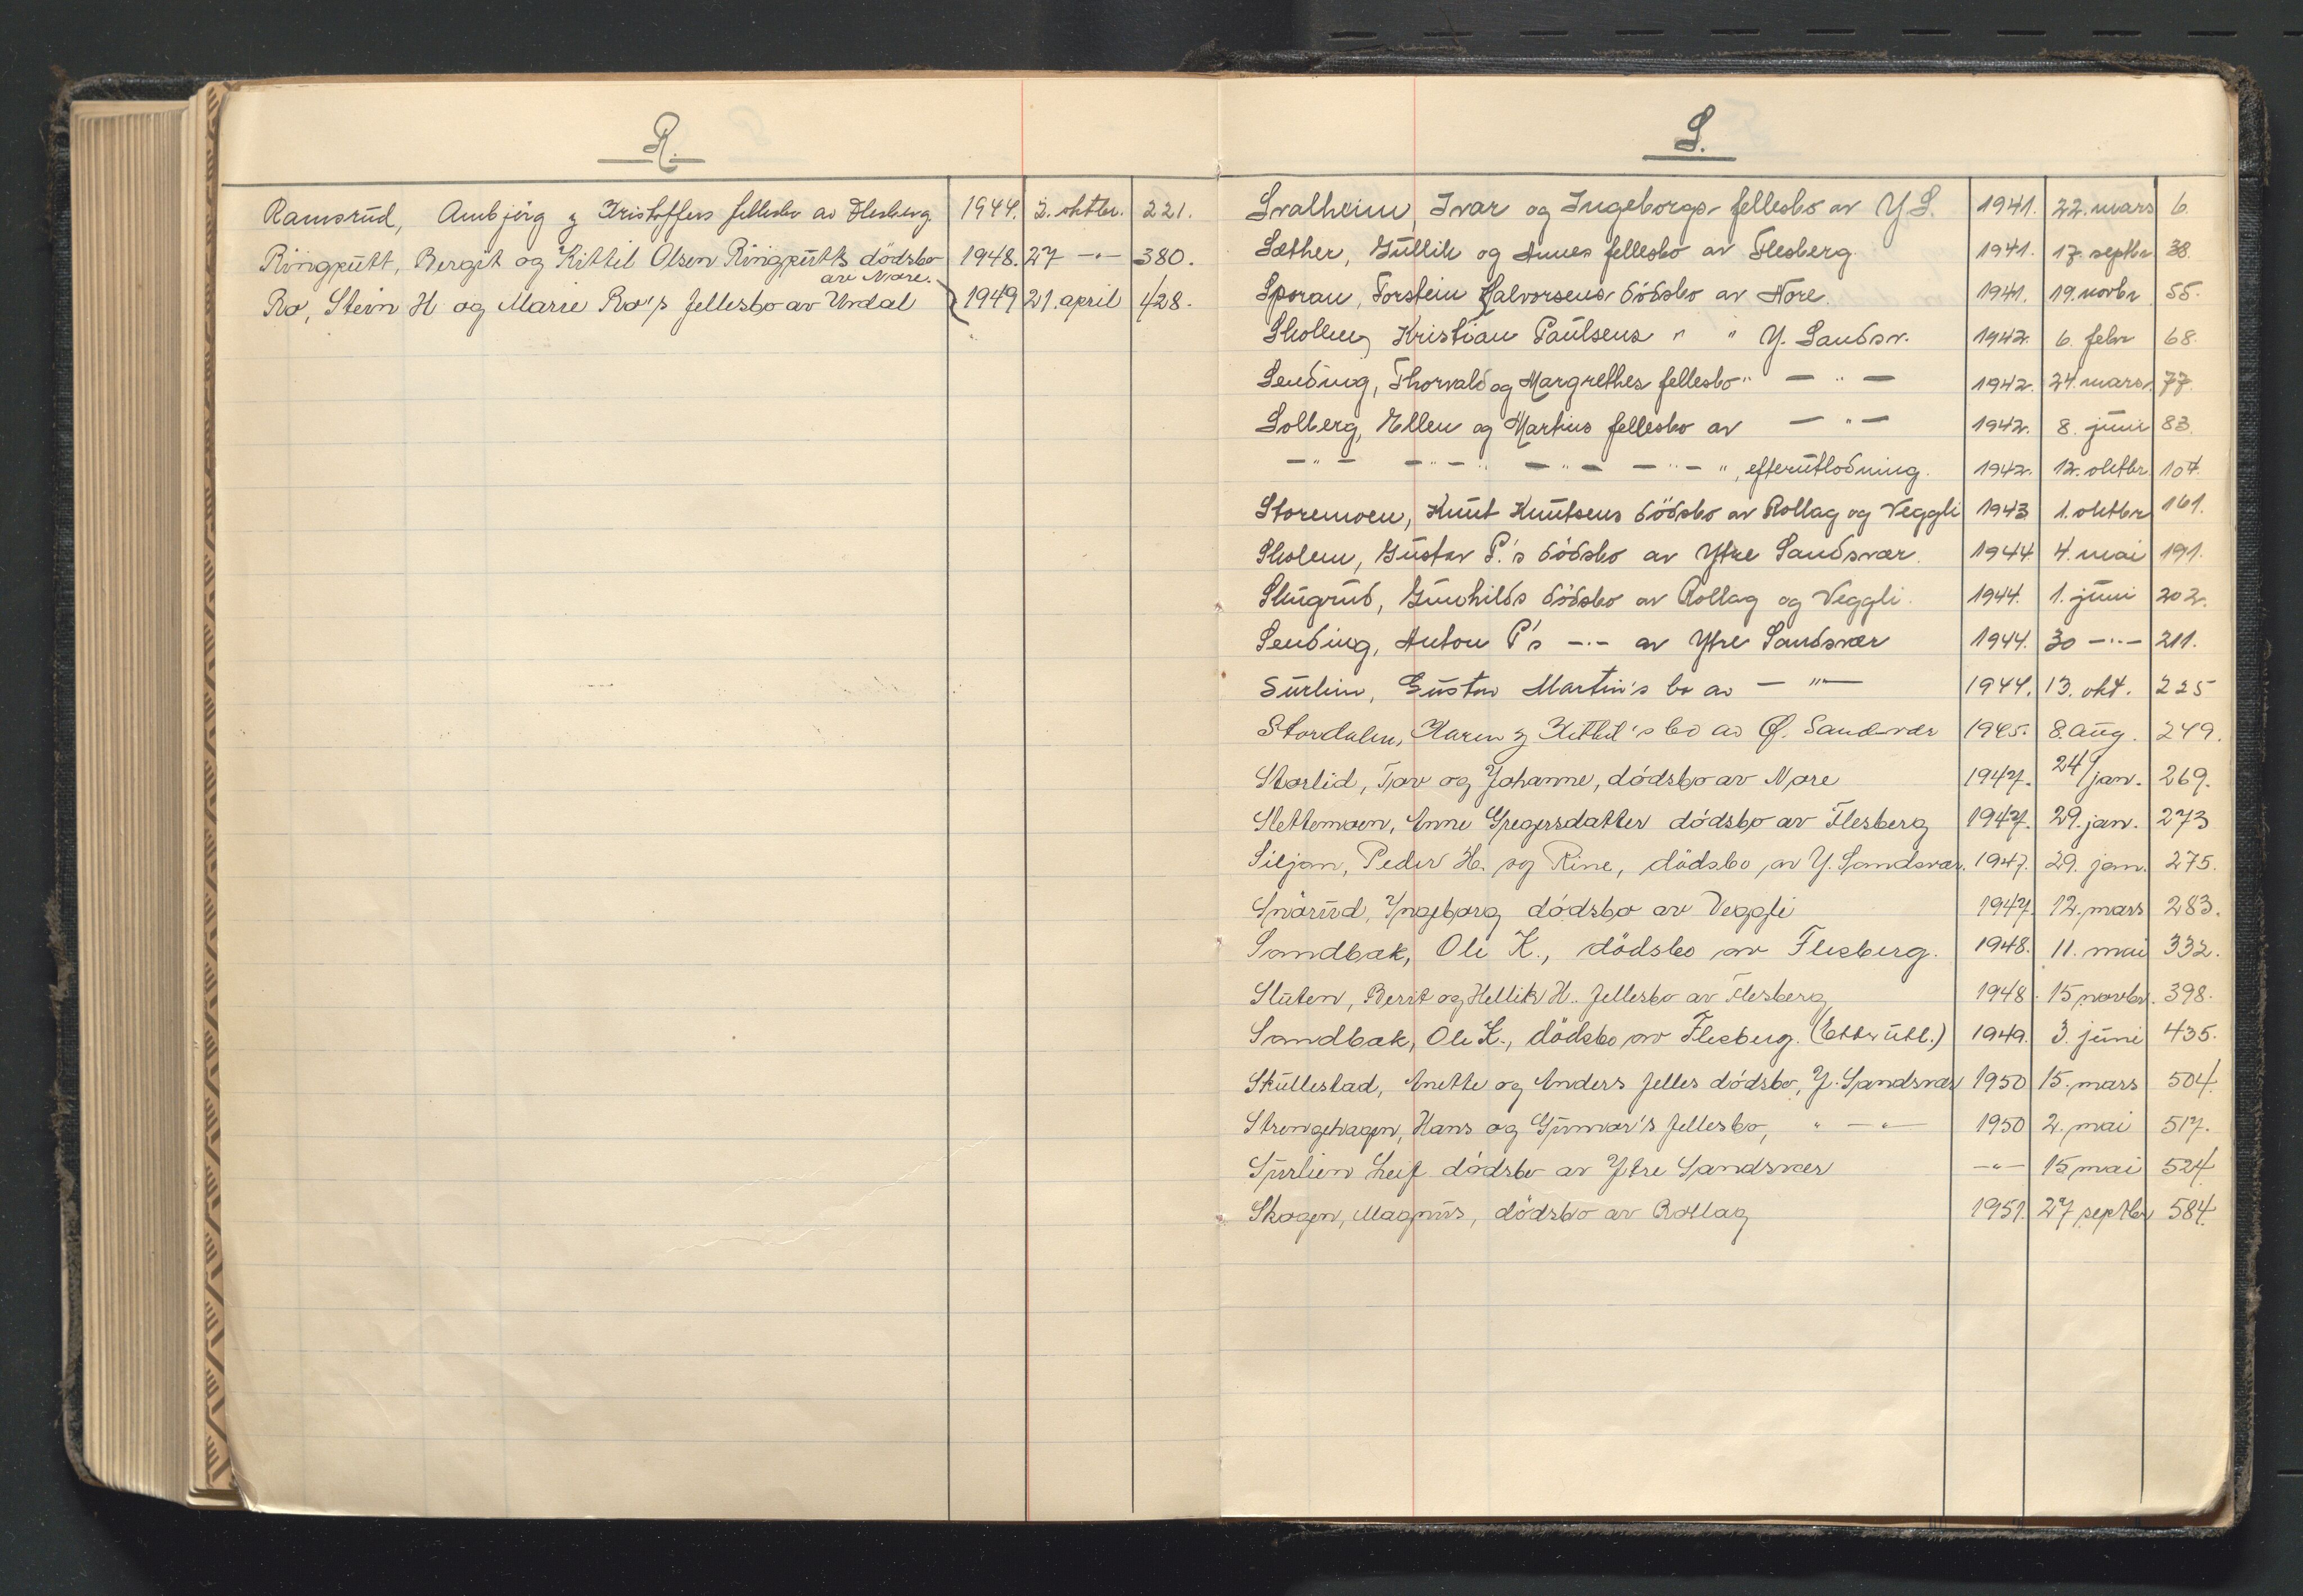 R.
Ramsrud, Ambjörg og Kristoffers fellesbo av Flesberg 1944. 3. oktbr. 221.
Ringputt, Bergit og Kittil Olsen Ringputts dödsbo av Nore. 1948. 27 -"- 380.
Ro, Stein H og Marie Ro's fellesbo av Uvdal 1949 21. april 428.
S.
Svalheim, Ivar og Ingeborgs fellesbo av Y S. 1941. 22. mars 6.
Sæther, Gullik og Annes fellesbo av Flesberg. 1941. 17. septbr 38.
Sporan, Torstein Halvorsens dödsbo av Nore. 1941. 19. novbr 55.
Skollem, Kristian Paulsens " " Y. Sandsv. 1942. 6. febr 68.
Sending, Thorvald og Margrethes fellesbo " — " — 1942. 24. mars. 77.
Solberg, Ellen og Martins fellesbo av — " — 1942. 8. juni 83.
— " — — " — " — " — — " — ", efterutlodning. 1942. 12. oktbr 107.
Storemoen, Knut Knutsens dödsbo av Rollag og Veggli 1943 1. oktbr 161.
Skolem, Gustav P.'s dödsbo av Ytre Sandsvær. 1944 4. mai 191.
Slugrud, Gunhilds dödsbo av Rollag og Veggli. 1944. 1. juni 202.
Sending, Anton P's -"- av Ytre Sandsvær 1944. 30 -"- 211.
Surlim, Gustav Martin's bo av — " — 1944. 13. okt. 225
Stordalen, Karen og Kittil's bo av Ø. Sandsvær 1945. 8. aug. 249.
Storlid, Tov og Johanne, dödsbo av Nore 1947. 24/jan. 269.
Slettemoen, Anne Gregersdatter dödsbo av Flesberg 1947. 29. jan. 273
Siljan, Peder H. og Rine, dödsbo av Y. Sandsvær. 1947. 29. jan. 275.
Snörud, Ingeborg dödsbo av Veggli 1947. 12. mars 283.
Sandbæk, Ole K., dödsbo av Flesberg. 1948. 11. mai 332.
Sluten, Berit og Hellik H. fellesbo av Flesberg 1948. 15 novbr. 398.
Sandbæk, Ole K., dödsbo av Flesberg. (Etterutl.) 1949. 3. juni 435.
Skullestad, Anette og Anders felles dödsbo, Y. Sandsvær 1950 15. mars 504.
Strengehagen, Hans og Gunvor's fellesbo, " — " — 1950 2. mai 517.
Surlien Leif dödsbo av Ytre Sandsvær -"- 15 mai 524
Skogen, Magnus, dödsbo av Rollag 1951. 27 septbr 584.